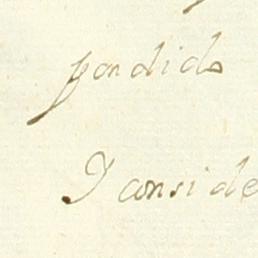 pondido
I conside